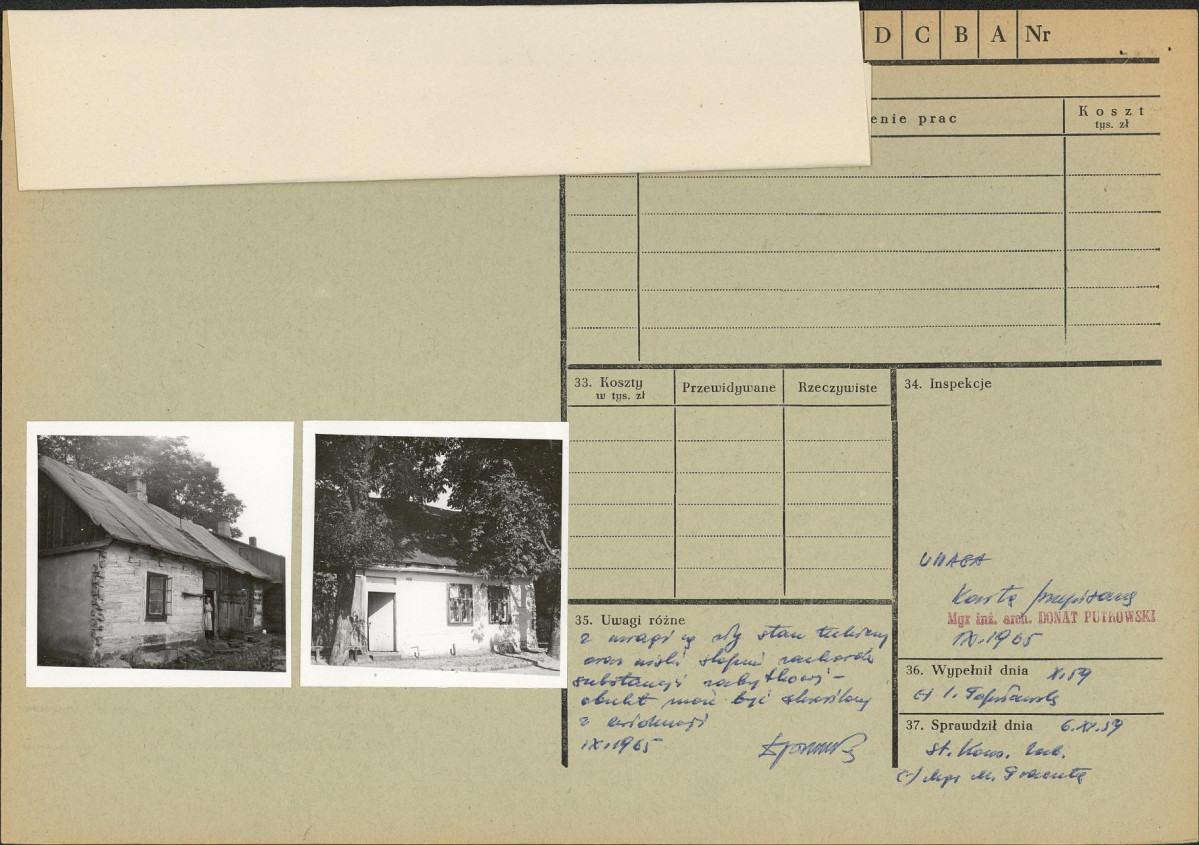 D C B A Nr
enie prac
Koszt
tys. zł
33. Koszty
w tys. zł
Przewidywane
Rzeczywiste
34. Inspekcje
UWAGA
Kartę przepisano
Mgr inż. arch. DONAT PUTKOWSKI
IX.1965
35. Uwagi różne
z uwagi na zły stan techniczny
oraz niski stopień zachowania
substancji zabytkowej -
obiekt może być skreślony
z ewidencji
IX.1965
36. Wypełnił dnia X.59
37. Sprawdził dnia 6.XI.59
St. Kons. Zab.
(-) Mgr M.